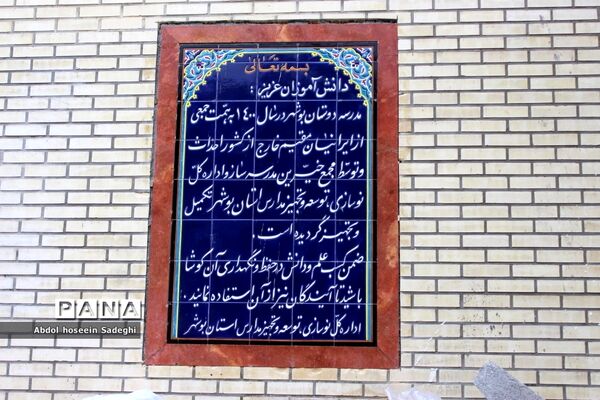 بسمه تعالی
دانش آموزان عزیز :
مدرسه دوستان بوشهر در سال ۱۴۰۰ به همت جمعی
از ایرانیان مقیم خارج از کشور احداث
و توسط مجمع خیرین مدرسه ساز و اداره کل
نوسازی، توسعه و تجهیز مدارس استان بوشهر تکمیل
و تجهیز گردیده است.
ضمن کسب علم و دانش در حفظ و نگهداری آن کوشا
باشید تا آیندگان نیز از آن استفاده نمایند.
اداره کل نوسازی، توسعه و تجهیز مدارس استان بوشهر
PANA
Abdol hoseein Sadeghi